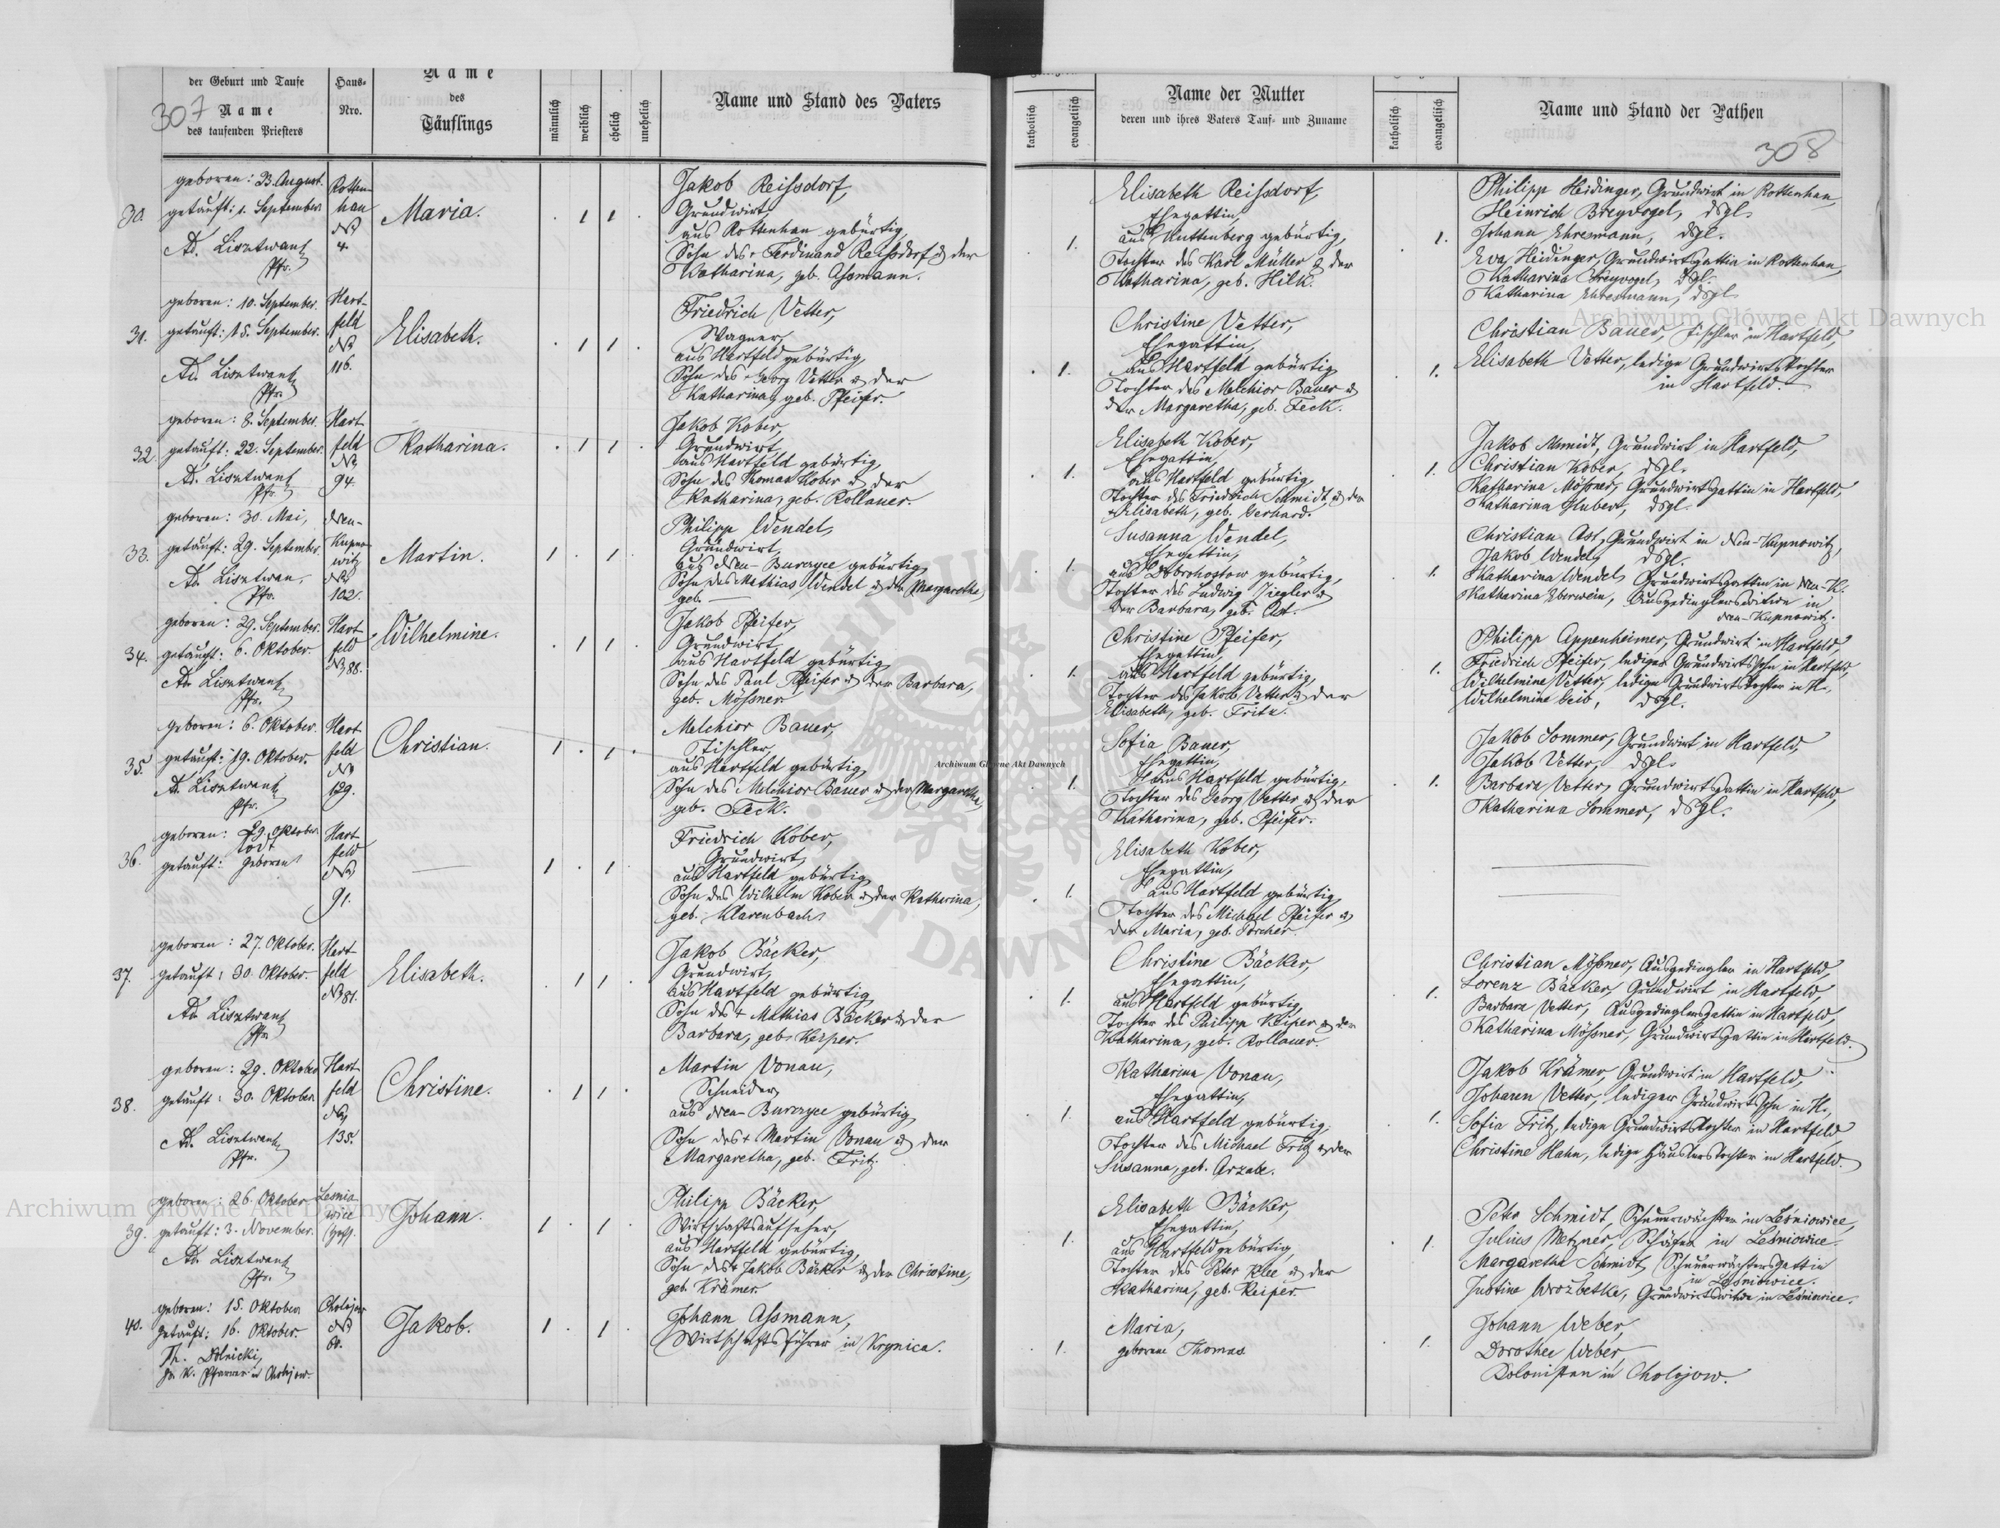 307
der Geburt und Taufe
Name
des taufenden Priesters
Haus-
Nro.
Name
des
Täuflings
männlich
weiblich
ehelich
unehelich
Name und Stand des Vaters
katholisch
evangelisch
Name der Mutter
deren und ihres Vaters Tauf- und Zuname
katholisch
evangelisch
Name und Stand der Pathen
308
30.
geboren: 23. August.
getauft: 1. September
Pfr.
Rotten-
han
No
4.
Maria.
Jakob Reißdorf,
Grundwirt,
aus Rottenhan gebürtig,
Sohn des + Ferdinand Reißdorf & der
Katharina, geb. Aßmann.
Elisabeth Reißdorf,
Ehegattin,
aus Muttenberg gebürtig,
Tochter des Karl Müller & der
Katharina, geb. Hilk.
Philipp Heidinger, Grundwirt in Rottenhan,
Heinrich Breyvogel, dsgl.
Johann Ehresmann, dsgl.
Eva Heidinger, Grundwirtsgattin in Rottenhan,
Katharina Breyvogel, dsgl.
Katharina Ehresmann, dsgl.
31.
geboren: 10. September.
getauft: 15. September.
Pfr.
Hart-
feld
No
116.
Elisabeth.
Friedrich Vetter,
Wagner,
aus Hartfeld gebürtig,
Sohn des + Georg Vetter & der
Katharina, geb. Pfeifer.
Christine Vetter,
Ehegattin,
aus Hartfeld gebürtig
Tochter des Melchior Bauer &
der Margaretha, geb. Feck.
Christian Bauer, Tischler in Hartfeld,
Elisabeth Vetter, ledige Grundwirtstochter
in Hartfeld.
32.
geboren: 8. September.
getauft: 22. September.
Pfr.
Hart-
feld
No
94.
Katharina.
Jakob Kober,
Grundwirt,
aus Hartfeld gebürtig,
Sohn des Thomas Kober & der
Katharina, geb. Rollauer.
Elisabeth Kober,
Ehegattin,
aus Hartfeld gebürtig,
Tochter des Friedrich Schmidt & der
+ Elisabeth, geb. Gerhard.
Jakob Schmidt, Grundwirt in Hartfeld,
Christian Kober, dsgl.
Katharina Mößner, Grundwirtsgattin in Hartfeld,
Katharina Hubert, dsgl.
33.
geboren: 30. Mai,
getauft: 29. September.
Pfr.
Neu-
Kupno-
witz
No
102.
Martin.
Philipp Wendel,
Grundwirt,
aus Neu-Burczyce gebürtig,
Sohn des Mathias Wendel & der Margaretha,
geb. —
Susanna Wendel,
Ehegattin,
aus Dobrohostow gebürtig,
Tochter des Ludwig Ziegler &
der Barbara, geb. Ast.
Christian Ast, Grundwirt in Neu-Kupnowitz,
Jakob Wendel, dsgl.
Katharina Wendel, Grundwirtsgattin in Neu-K.
Katharina Eberwein, Ausgedinglerswitwe in
Neu-Kupnowitz.
34.
geboren: 29. September.
getauft: 6. Oktober.
Pfr.
Hart-
feld
No 88.
Wilhelmine.
Jakob Pfeifer,
Grundwirt,
aus Hartfeld gebürtig,
Sohn des Paul Pfeifer & der Barbara,
geb. Mößner.
Christine Pfeifer,
Ehegattin,
aus Hartfeld gebürtig,
Tochter des Jakob Vetter & der
Elisabeth, geb. Fritz.
Philipp Appenheimer, Grundwirt in Hartfeld,
Friedrich Pfeifer, lediger Grundwirtssohn in Hartfeld,
Wilhelmine Vetter, ledige Grundwirtstochter in H.,
Wilhelmine Leib, dsgl.
35.
geboren: 6. Oktober.
getauft: 19. Oktober.
Pfr.
Hart-
feld
No
129.
Christian.
Melchior Bauer,
Tischler,
aus Hartfeld gebürtig,
Sohn des Melchior Bauer & der Margaretha,
geb. Feck.
Sofia Bauer,
Ehegattin,
aus Hartfeld gebürtig,
Tochter des Georg Vetter & der
Katharina, geb. Pfeifer.
Jakob Sommer, Grundwirt in Hartfeld,
Jakob Vetter, dsgl.
Barbara Vetter, Grundwirtsgattin in Hartfeld,
Katharina Sommer, dsgl.
36.
geboren: 29. Oktober.
todt
getauft: geboren
Hart-
feld
No
91.
Friedrich Kober,
Grundwirt,
aus Hartfeld gebürtig,
Sohn des Wilhelm Kober & der Katharina,
geb. Klarenbach.
Elisabeth Kober,
Ehegattin,
aus Hartfeld gebürtig,
Tochter des Michael Pfeifer &
der Maria, geb. Porcher.
37.
geboren: 27. Oktober.
getauft: 30. Oktober.
Pfr.
Hart-
feld
No 81.
Elisabeth.
Jakob Bäcker,
Grundwirt,
aus Hartfeld gebürtig,
Sohn des + Mathias Bäcker & der
Barbara, geb. Kerper.
Christine Bäcker,
Ehegattin,
aus Hartfeld gebürtig,
Tochter des Philipp Keiper & der
Katharina, geb. Rollauer.
Christian Mößner, Ausgedingler in Hartfeld,
Lorenz Bäcker, Grundwirt in Hartfeld,
Barbara Vetter, Ausgedinglersgattin in Hartfeld,
Katharina Mößner, Grundwirtsgattin in Hartfeld.
38.
geboren: 29. Oktober
getauft: 30. Oktober.
Pfr.
Hart-
feld
No
135.
Christine.
Martin Vonau,
Schneider,
aus Neu-Burczyce gebürtig,
Sohn des + Martin Vonau & der
Margaretha, geb. Fritz.
Katharina Vonau,
Ehegattin,
aus Hartfeld gebürtig,
Tochter des Michael Fritz & der
Susanna, geb. Arzabe.
Jakob Krämer, Grundwirt in Hartfeld,
Johann Vetter, lediger Grundwirtssohn in H.,
Sofia Fritz, ledige Grundwirtstochter in Hartfeld,
Christine Hahn, ledige Häuslerstochter in Hartfeld.
39.
geboren: 26. Oktober
getauft: 3. November.
Pfr.
Lesnio-
wice
Johann.
Philipp Bäcker,
Wirtschaftsaufseher,
aus Hartfeld gebürtig,
Sohn des + Jakob Bäcker & der Christine,
geb. Krämer.
Elisabeth Bäcker,
Ehegattin,
aus Hartfeld gebürtig,
Tochter des Peter Klee & der
Katharina, geb. Keiper.
Peter Schmidt, Scheuerwächter in Leśniowice,
Julius Metzner, Schäfer in Leśniowice.
Margaretha Schmidt, Scheuerwächtersgattin
in Leśniowice.
Justine Wrozbetke, Grundwirtswitwe in Leśniowice.
40.
geboren: 15. Oktober
getauft: 16. Oktober.
Th. Dolnicki,
gr. k. Pfarrer in Cholojow.
Cholojow
No
Jakob.
Johann Aßmann,
Wirtschaftsführer in Krynica.
Maria,
geborene Thomas
Johann Weber,
Dorothee Weber
Kolonisten in Cholojow.
Archiwum Główne Akt Dawnych
Archiwum Główne Akt Dawnych
Archiwum Główne Akt Dawnych